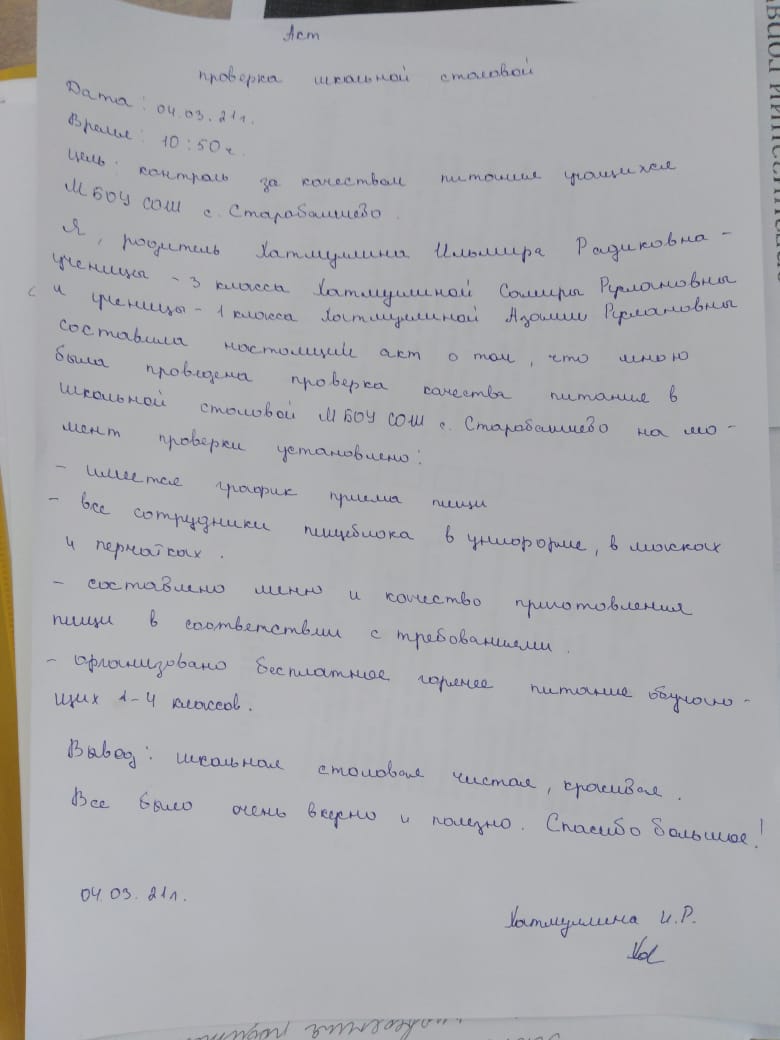 Акт
проверка школьной столовой
Дата: 04.03.21г.
Время: 10:50ч.
Цель: контроль за качеством питания учащихся
МБОУ СОШ с. Старобалтачево.
Я, родитель Хатмуллина Ильмира Радиковна -
ученицы - 3 класса Хатмуллиной Самиры Руслановны
и ученицы - 1 класса Хатмуллиной Азалии Руслановны
составила настоящий акт о том, что мною
была проведена проверка качества питание в
школьной столовой МБОУ СОШ с. на мо-
мент проверки установлено:
- имеется график приема пищи
- все сотрудники пищеблока в униформе, в масках
и перчатках.
- составлено меню и качество приготовления
пищи в соответствии с требованиями.
- организовано бесплатное горячее питание обучаю-
щих 1-4 классов.
Вывод: школьная столовая чистая, красивая.
Все было очень вкусно и полезно. Спасибо большое!
04.03.21г.
Хатмуллина И.Р.